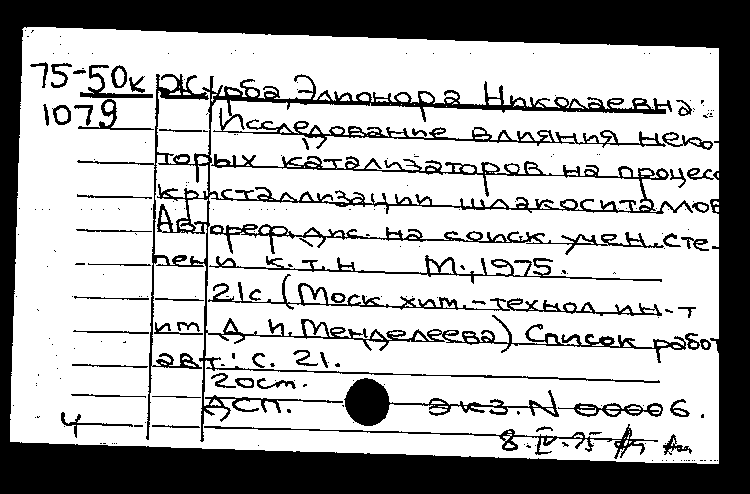 75-50к Журба, Элионора Николаевна.
1079 Исследование влияния неко-
торых катализаторов на процесс
кристаллизации шлакоситаллов
Автореф. дис. на соиск. учен. сте-
пени к.т.н. М., 1975.
21с. (Моск. хим.-технол. ин-т
им Д. И. Менделеева) Список работ
авт.: с. 21.
20ст.
ДСП. экз. N 00006.
4
8.IV.75